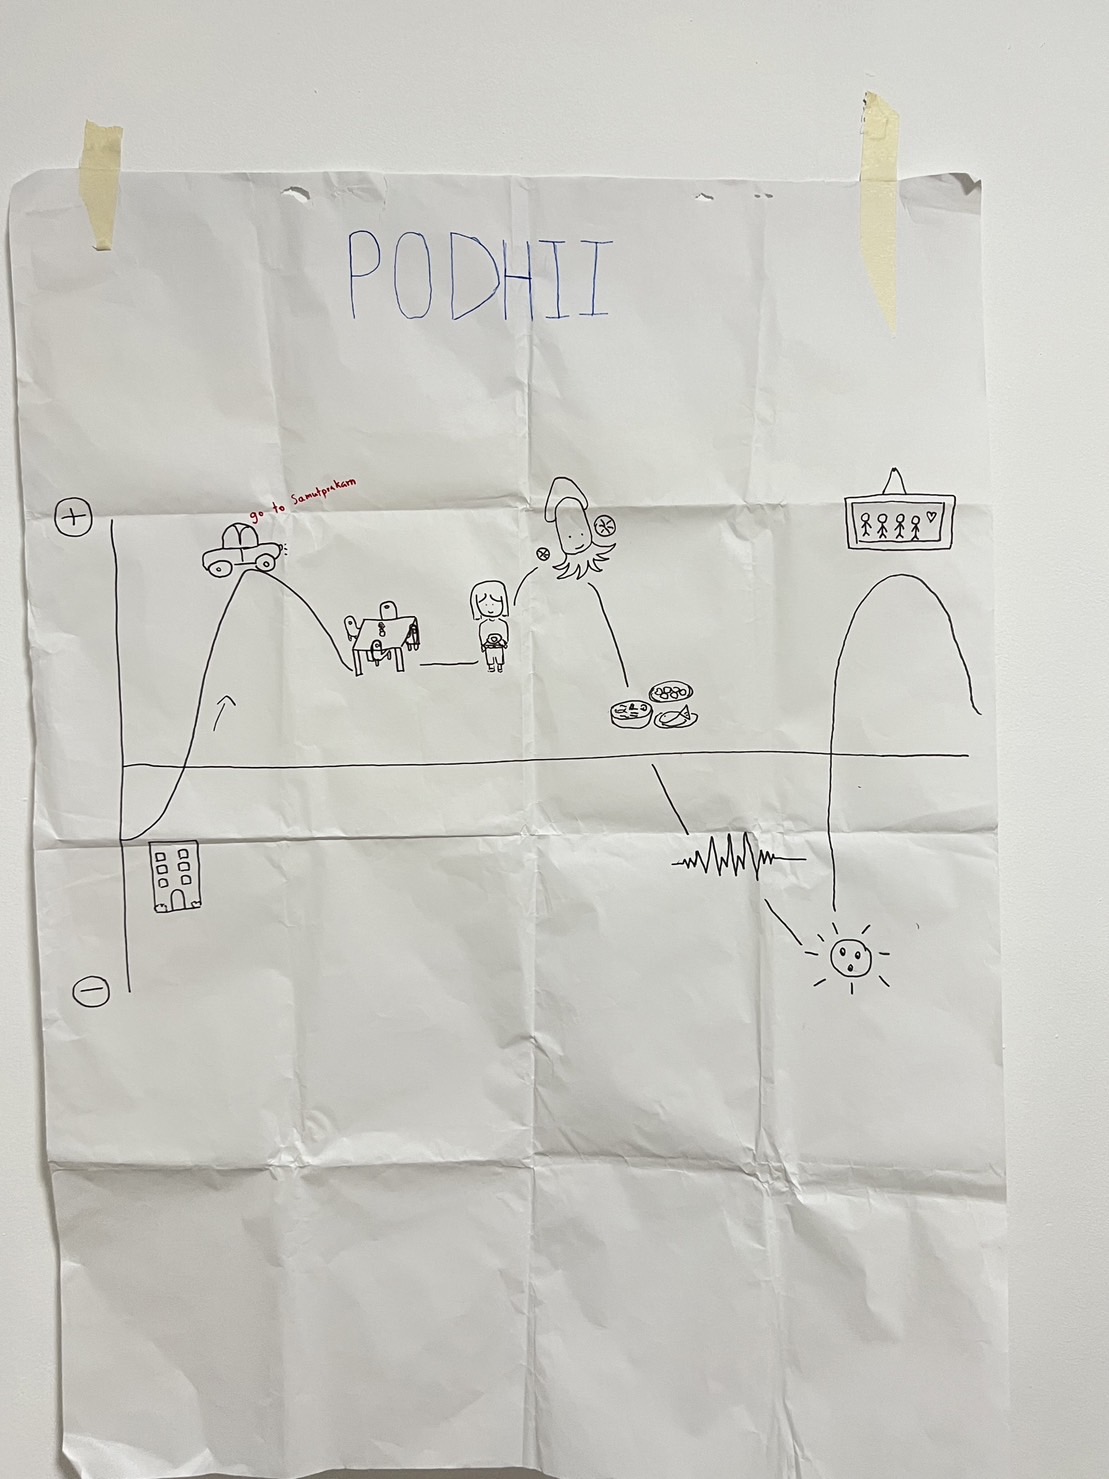 PODHII
go to Samutprakarn
+
−